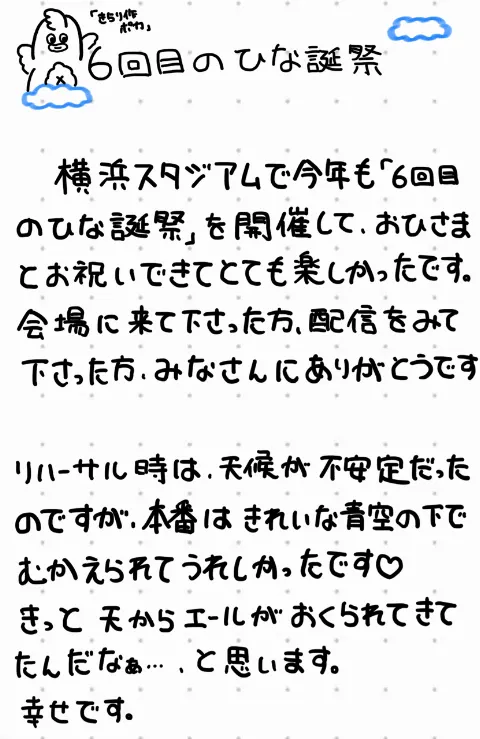 「きらり作
ポカ」
6回目のひな誕祭
横浜スタジアムで今年も「6回目
のひな誕祭」を開催して、おひさま
とお祝いできてとても楽しかったです。
会場に来て下さった方、配信をみて
下さった方、みなさんにありがとうです
リハーサル時は、天候が不安定だった
のですが、本番はきれいな青空の下で
むかえられてうれしかったです♡
きっと天からエールがおくられてきて
たんだなぁ…、と思います。
幸せです。